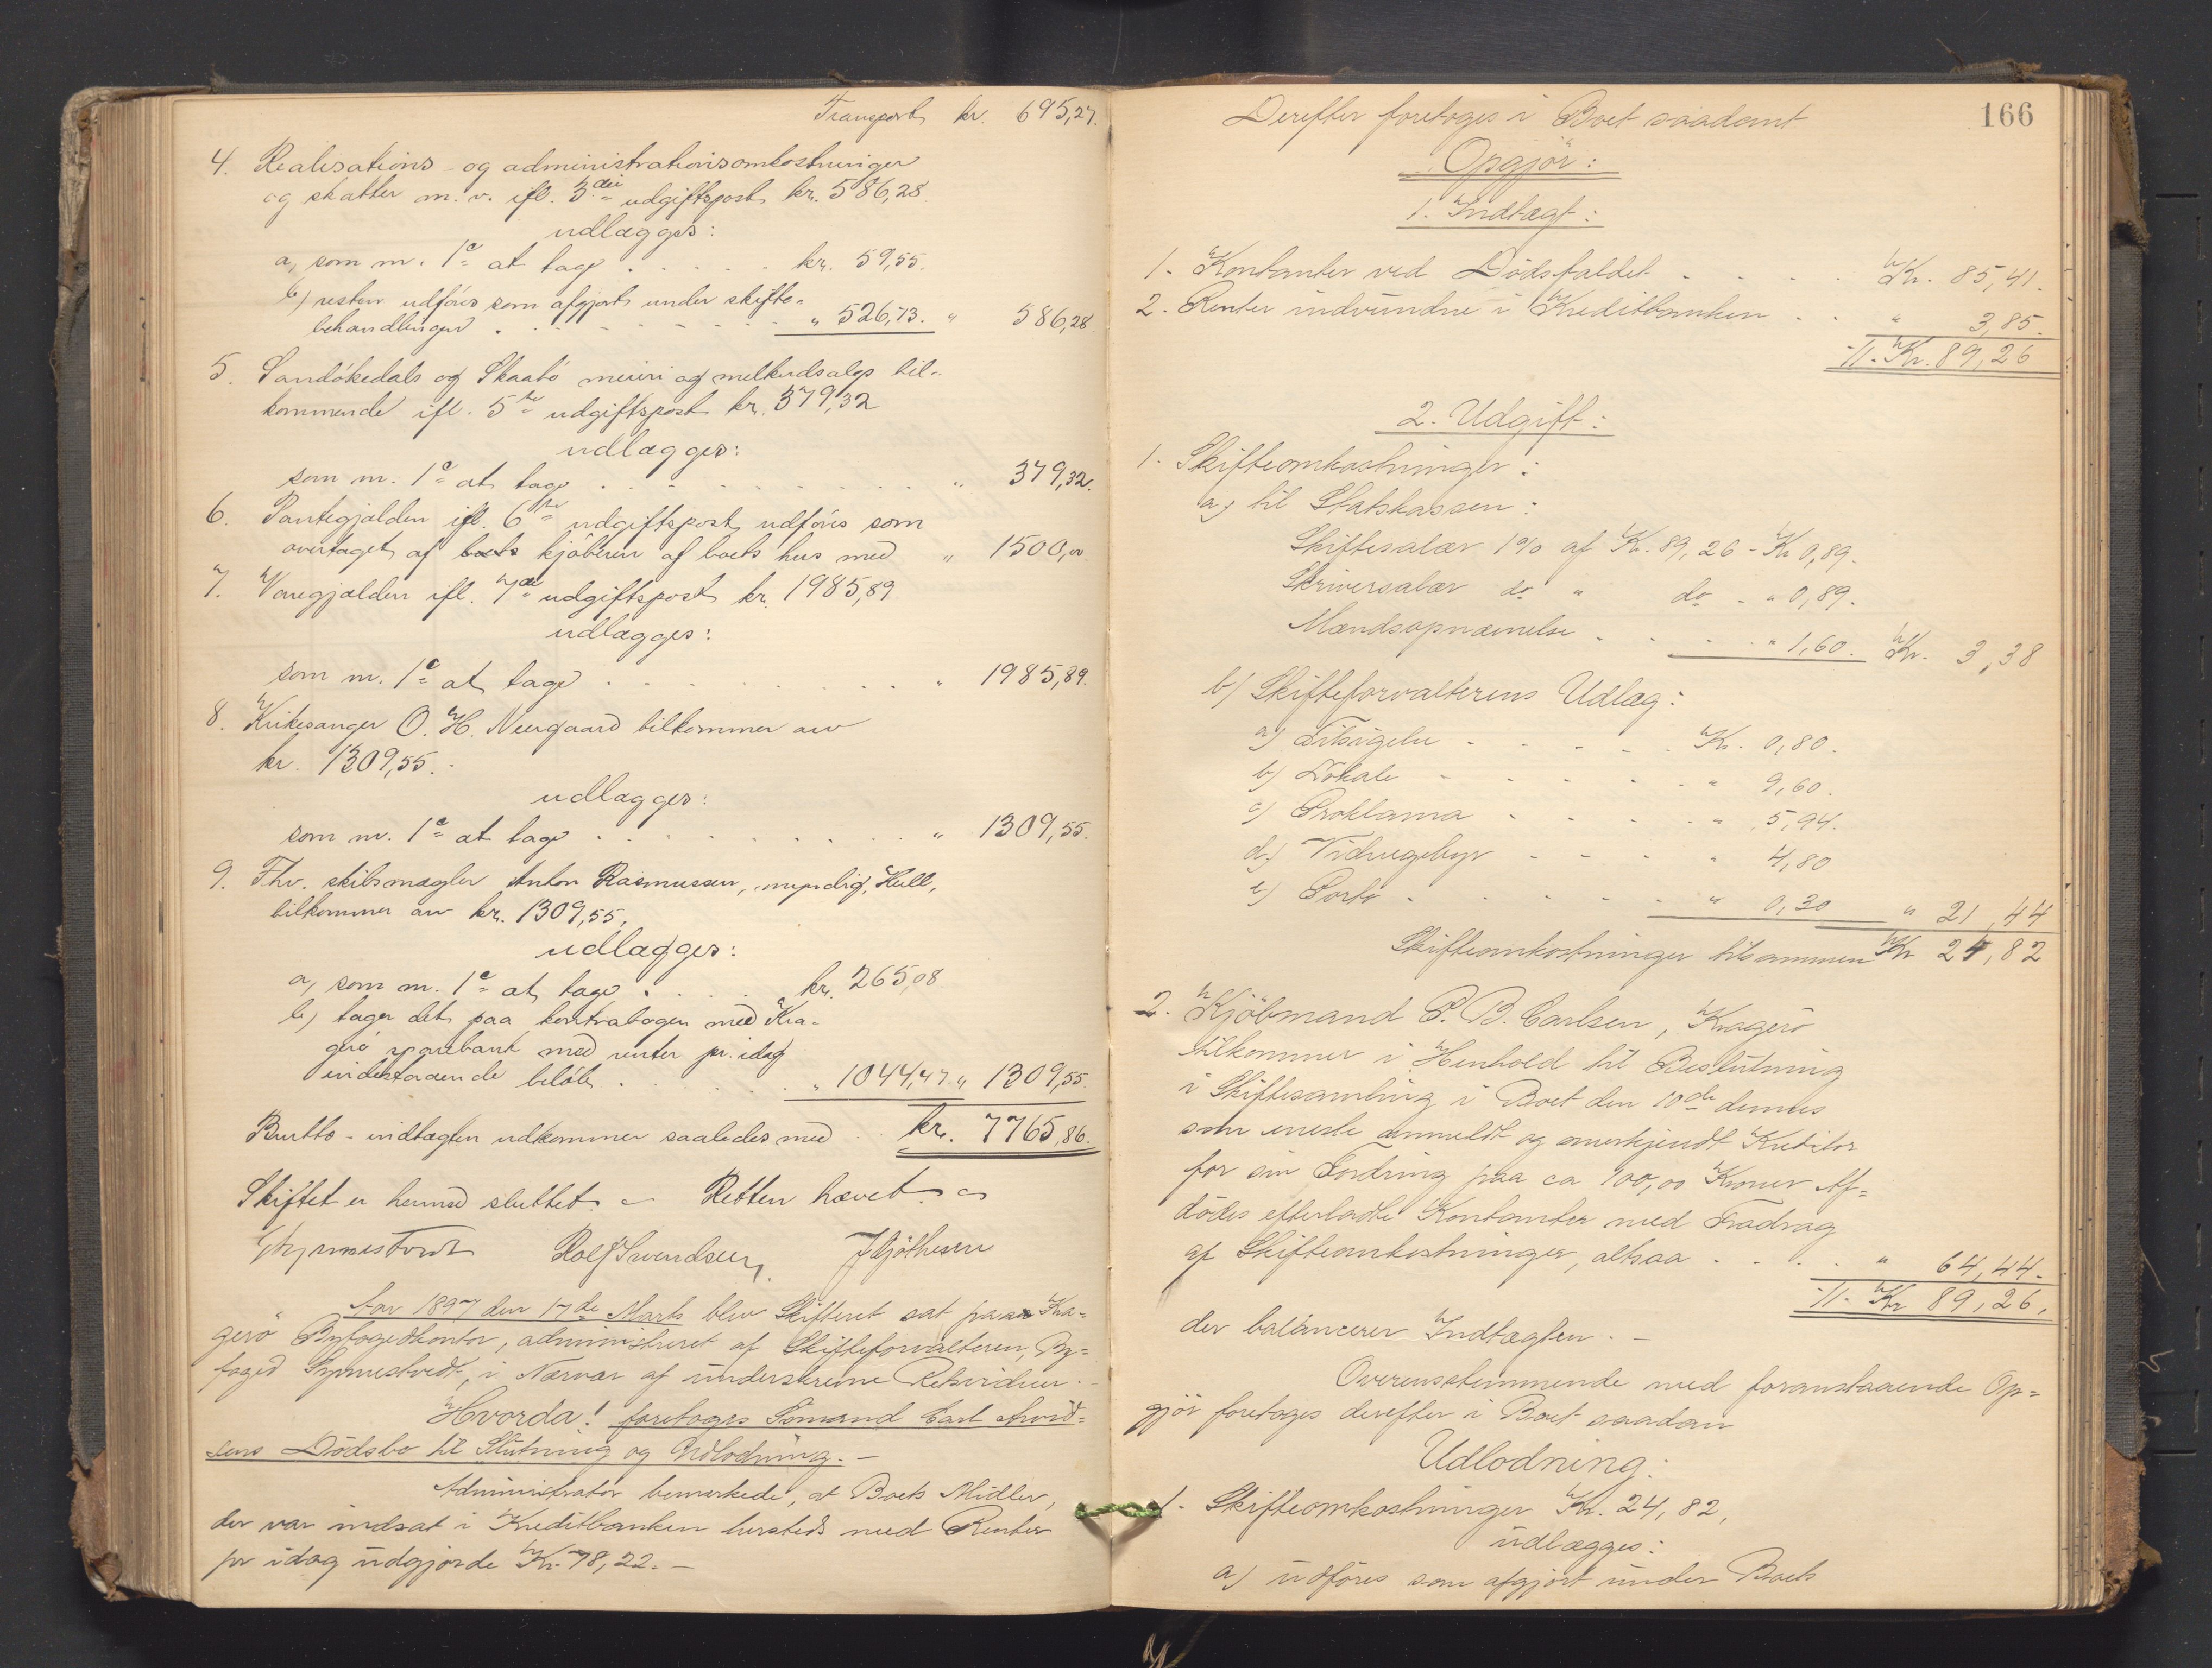 Transport kr. 695,27.
4. Realisations- og administrationsomkostninger
og skatter m.v. ifl. 3die udgiftspost kr. 586,28.
udlægges:
a, som m. 1c at tage . . . . kr. 59,55.
b) resten udföres som afgjort under skifte-
behandlingen . . . . . . . . " 526,73. " 586,28.
5. Sandökedals og Skaatö meieri og melkudsalgs til-
kommende ifl. 5te udgiftspost kr. 379,32
udlægges:
som m. 1c at tage . . . . . . . . " 379,32.
6. Pantegjælden ifl. 6te udgiftspost udföres som
overtaget af boets kjöberen af boets hus med " 1500,00
7. Varegjælden ifl. 7de udgiftspost kr. 1985,89
udlægges:
som m. 1c at tage . . . . . . . . " 1985,89.
8. Kirkesanger O. H. Neergaard tilkommer arv
kr. 1309,55.
udlægges:
som m. 1c at tage . . . . . . . . " 1309,55.
9. Fhv. skibsmægler Anton Rasmussen, myndig, Hull,
tilkommer arv kr. 1309,55,
udlægges:
a, som m. 1c at tage . . . . kr. 265,08.
b) tager det paa kontrabogen med Kra-
gerö sparebank med renter pr. idag
indestaaende belöb . . . . . " 1044,47 " 1309,55.
Brutto-indtægten udkommer saaledes med . . kr. 7765,86.
Skiftet er hermed sluttet. – Retten hævet.
Rolf Svendsen, J Gjöthesen
Aar 1897 den 17de Marts blev Skifteret sat paa Kra-
gerö Byfogedkontor, administreret af Skifteforvalteren, By-
foged Synnestvedt, i Nærvær af underskrevne Retsvidner. –
Hvorda! foretoges Sömand Carl Arvid-
sens Dödsbo til Slutning og Udlodning. –
Administrator bemerkede, at Boets Midler,
der var indsat i Kreditbanken hersteds med Renter
pr idag udgjorde Kr. 78,22. –
166
Derefter foretoges i Boet saadant
Opgjör:
1. Indtægt:
1. Kontanter ved Dödsfaldet . . . . Kr. 85,41.
2. Renter indvundne i Kreditbanken . . " 3,85.
-//- Kr. 89,26
2. Udgift:
1. Skifteomkostninger:
a, til Statskassen:
Skiftesalær 1% af Kr. 89,26 - Kr 0,89.
Skriversalær do " do - " 0,89.
Mændsopnævnelse . . . . " 1,60. Kr. 3,38
b/ Skifteforvalterens Udlæg:
a) Tilsigelse . . . . . Kr. 0,80.
b) Lokale . . . . . " 9,60.
c) Proklama . . . . . " 5,94.
d) Vidnegebyr . . . . " 4,80
e) Porto . . . . . " 0,30 " 21,44
Skifteomkostninger tilsammen Kr 24,82
2. Kjöbmand P. B. Carlsen, Kragerö
tilkommer i Henhold til Beslutning
i Skiftesamling i Boet den 10de dennes
som eneste anmeldt og anerkjendt Kreditor
for sin Fordring paa ca 100,00 Kroner Af-
dödes efterladte Kontanter med Fradrag
af Skifteomkostninger, altsaa . . . . " 64,44.
-//- Kr 89,26.
der balancerer Indtægten. –
Overensstemmende med foranstaaende Op-
gjör foretages derefter i Boet saadan
Udlodning:
1. Skifteomkostninger Kr. 24,82,
udlægges:
a) udföres som afgjort under Boets